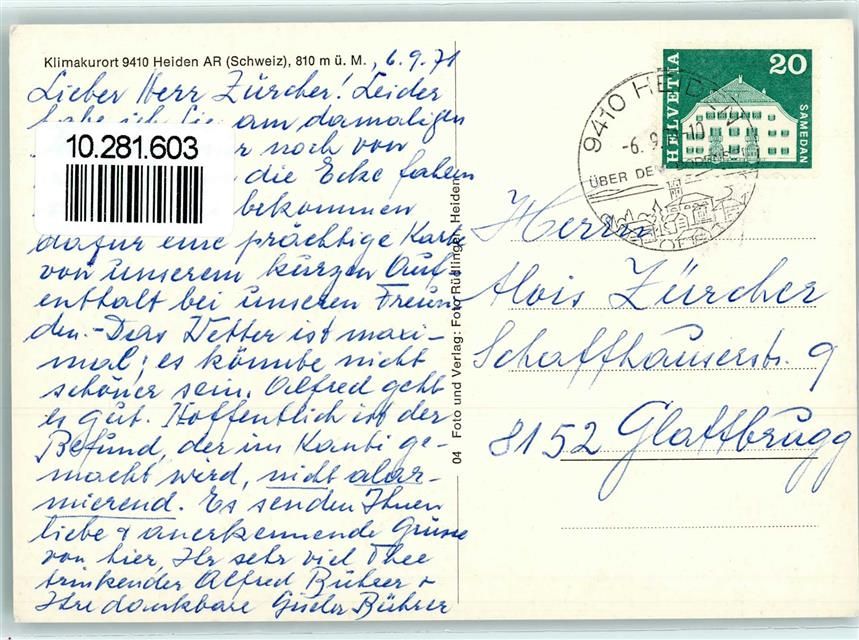 Klimakurort 9410 Heiden AR (Schweiz), 810 m ü. M., 6.9.71
Lieber Herr Zürcher! Leider
habe ich Sie am damaligen
noch von
die Ecke fahren
bekommen
dafür eine prächtige Karte
von unserem kurzen Auf-
enthalt bei unseren Freun-
den. - Das Wetter ist maxi-
mal; es könnte nicht
schöner sein. Alfred geht
es gut. Hoffentlich ist der
Befund, der im Kanti ge-
macht wird, nicht alar-
mierend. Es senden Ihnen
liebe & anerkennende Grüsse
von hier, Ihr sehr viel Thee
trinkender Alfred Bührer +
Ihre dankbare Bührer
10.281.603
04 Foto und Verlag: Foto Rüdlinger, Heiden
HELVETIA
20
SAMEDAN
9410 HEIDEN
-6. 9. -10
ÜBER DEM BODENSEE
Herrn
Alois Zürcher
Schaffhauserstr. 9
8152 Glattbrugg